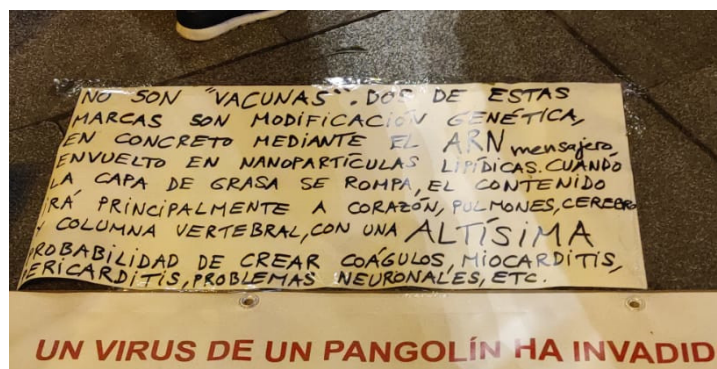 NO SON "VACUNAS". DOS DE ESTAS
MARCAS SON MODIFICACIÓN GENÉTICA,
EN CONCRETO MEDIANTE EL ARN mensajero,
ENVUELTO EN NANOPARTÍCULAS LIPÍDICAS. CUANDO
LA CAPA DE GRASA SE ROMPA, EL CONTENIDO
IRÁ PRINCIPALMENTE A CORAZÓN, PULMONES, CEREBRO
Y COLUMNA VERTEBRAL, CON UNA ALTÍSIMA
PROBABILIDAD DE CREAR COÁGULOS, MIOCARDITIS,
PERICARDITIS, PROBLEMAS NEURONALES, ETC.
UN VIRUS DE UN PANGOLÍN HA INVADID